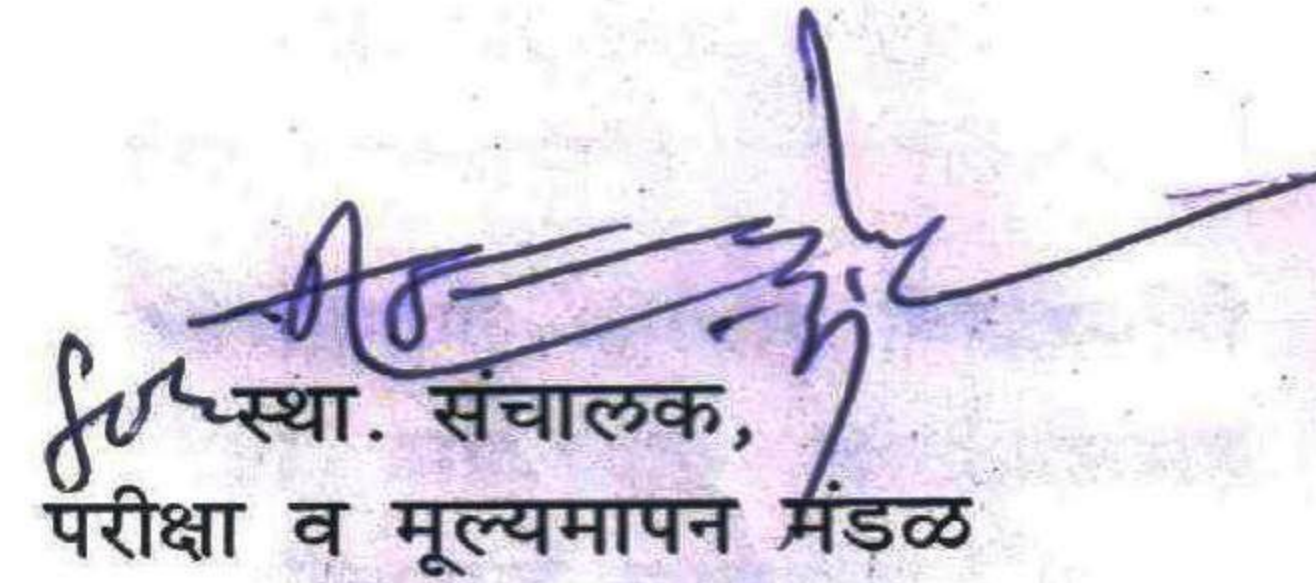 For स्था. संचालक,
परीक्षा व मूल्यमापन मंडळ